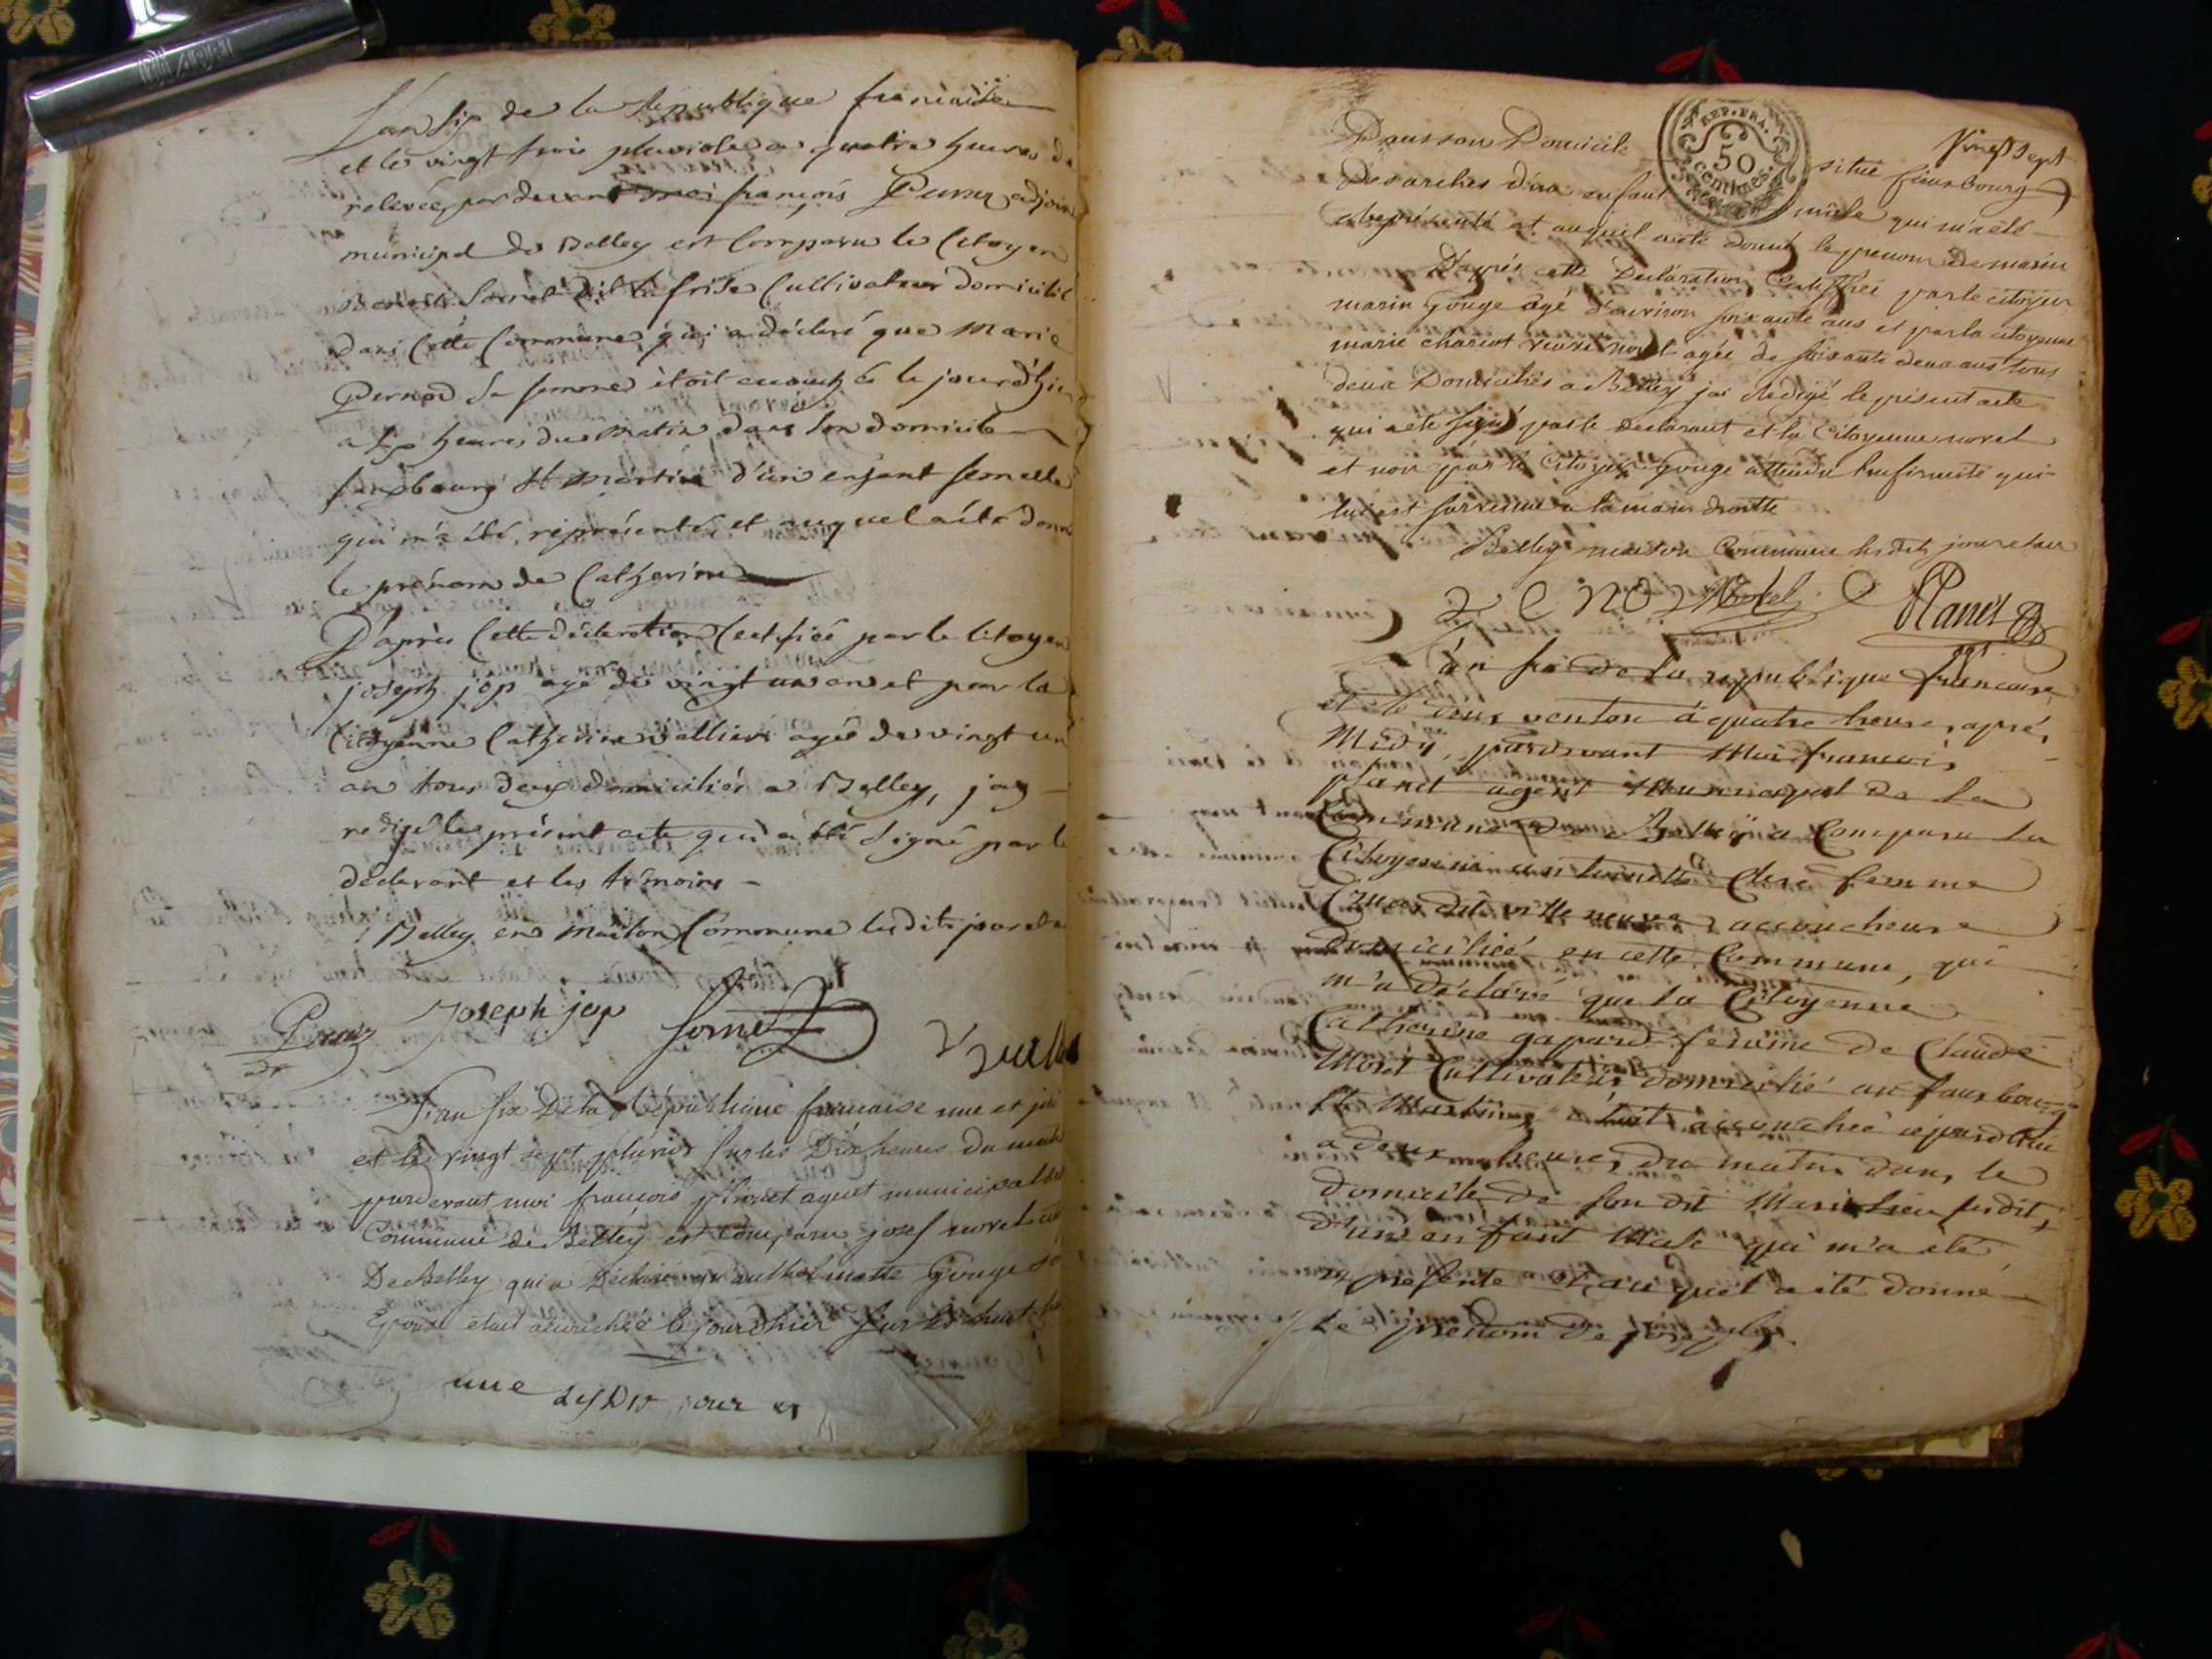 L'an six de la Republique francaise
et le vingt trois pluviose a quatre heures de
relevée, par devant moi françois adjoint
municipal de Belley est Comparu le Citoyen
Sornet dit la frise Cultivateur domicilié
dans Cette Commune qui a déclaré que Marie
Pernod sa femme étoit accouchée le jourd'hier
a six heures du matin dans son domicile
fauxbourg St martin d'un enfant femelle
qui m'a été représenté et auquel a été donné
le prénom de Catherine
D'après Cette déclaration Certifiée par le Citoyen
joseph jop agé de vingt un an et par la
Citoyenne Catherine vallier agée de vingt un
an tous deux domiciliés a Belley, j'ay
redigé le présent acte qui a été signé par le
déclarant et les témoins
Belley en Maison Commune lesdits jour et an
Joseph jop Sornet
L'an six De la République francaise une et
et le vingt sept pluviose sur les Dix heures du matin
pardevant moi françois planet agent municipal de
Commune de Belley est comparu josef morel
De Belley qui a Déclaré Gouge
Epouse etait accouchée le jourdhier sur les huit
une
Vingt sept
Dans son Domicile situé fauxbourg
Desarches d'un enfant mâle qui m'a été
représenté et auquel a été donné le prenom de marin
D'après cette Declaration Certifiée par le citoyen
marin Gouge agé d'environ soixante ans et par la citoyenne
marie chariot veuve morel agée de soixante deux ans tous
deux Domiciliés a Belley jai redigé le présent acte
qui a été signé par le declarant et la Citoyenne morel
et non par le Citoyen Gouge attendu l'infirmité qui
lui est survenue a la main droitte
Belley maison Commune lesdits jour et an
Planet
REP. FRA.
50
CENTIMES
L'an six de la republique francaise
et le deux ventose à quatre heures après
Midy, pardevant Moi francois
planet agent Municipal de la
Commune de Belley a Comparu la
Citoyenne antoinette Clerc femme
dit villeneuve accoucheuse
domiciliée en cette Commune, qui
m'a déclaré que la Citoyenne
Catherine gapard femme de Claude
Morel Cultivateur domicilié au fauxbourg
St Martin etoit accouchée cejourd'hui
a deux heures du matin dans le
domicile de son dit Mari lieu susdit,
D'un enfant Male qui m'a été
représenté et auquel a été donné
Le prenom de joseph.